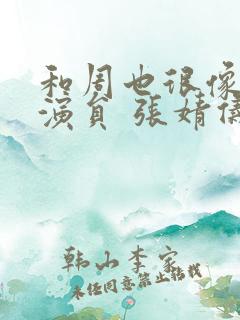 和周也很像
演员 张婧仪
韩山李家
未经同意禁止转载